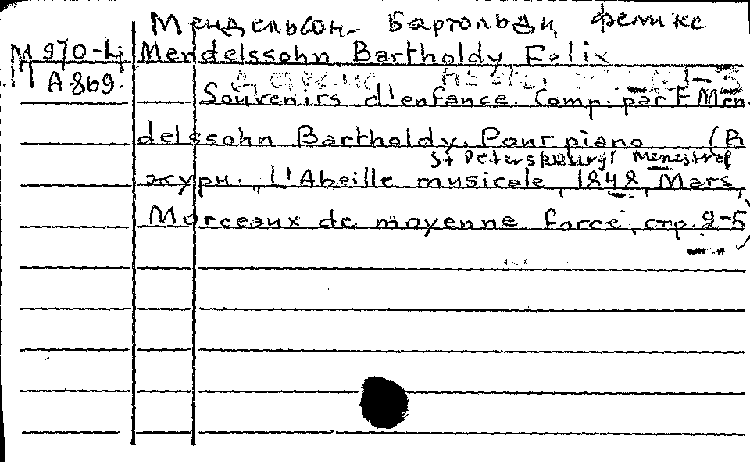 Мендельсон-Бартольди, Феликс
М 970-Lj Mendelssohn Bartholdy Felix
A 869.
Souvenirs d'enfance. Comp. par F Men
delssohn Bartholdy. Pour piano (В
St Petersbourg, Menestrel
журн. L'Abeille musicale, 1848, Mars,
Morceaux de moyenne force, стр. 2-5)